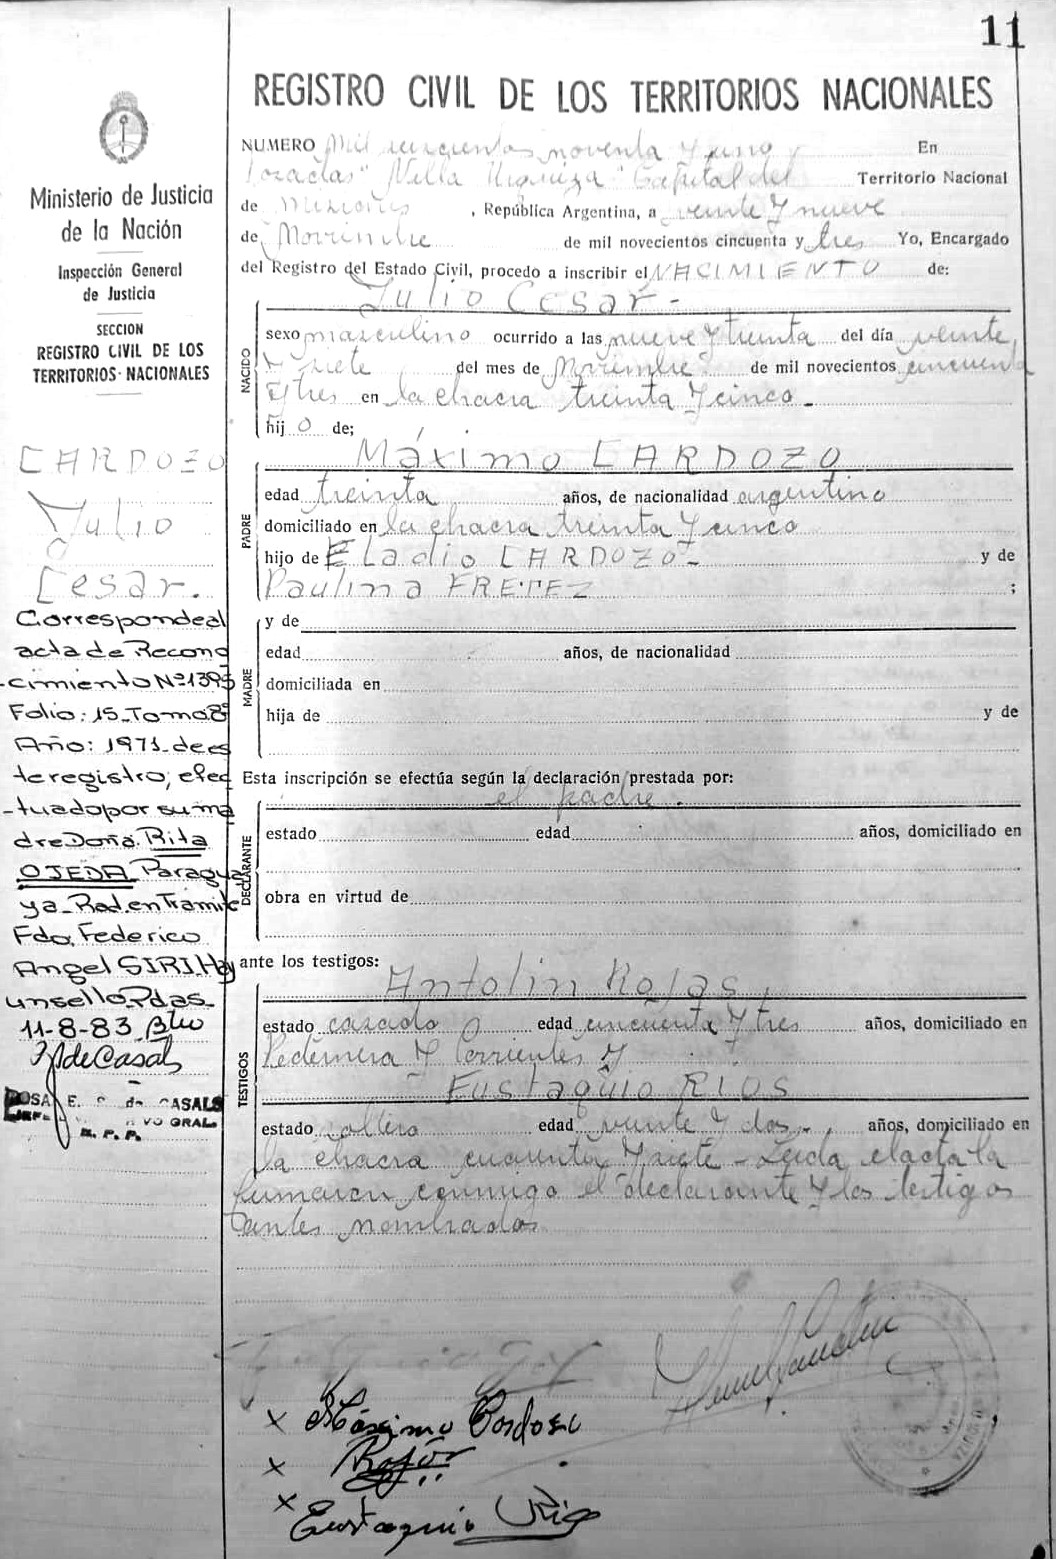 11
REGISTRO CIVIL DE LOS TERRITORIOS NACIONALES
Ministerio de Justicia
de la Nación
Inspección General
de Justicia
SECCION
REGISTRO CIVIL DE LOS
TERRITORIOS NACIONALES
CARDOZO
Julio
Cesar.
Corresponde al
acta de Recono
-cimiento Nº 1395
Folio: 15_Tomo 8º
Año: 1971_de es
te registro, efec
-tuado por su ma
dre Doña. Rita
OJEDA Paragua
ya_Rad. en Tramite
Fdo. Federico
Angel SIRI. Hay
un sello. Pdas_
11-8-83
de Casals
ROSA E. de CASALS
NUMERO Mil noventa y uno En
Posadas "Villa Urquiza" Capital del Territorio Nacional
de Misiones, República Argentina, a veinte y nueve
de Noviembre de mil novecientos cincuenta y tres Yo, Encargado
del Registro del Estado Civil, procedo a inscribir el NACIMIENTO de:
NACIDO
Julio Cesar-
sexo masculino ocurrido a las nueve y treinta del día veinte
y siete del mes de Noviembre de mil novecientos cincuenta
y tres en la chacra treinta y cinco-
hijo de;
PADRE
Máximo CARDOZO
edad treinta años, de nacionalidad argentino
domiciliado en la chacra treinta y cinco
hijo de Eladio CARDOZO- y de
Paulina ;
MADRE
y de
edad años, de nacionalidad
domiciliada en
hija de y de
Esta inscripción se efectúa según la declaración prestada por:
DECLARANTE
el padre.
estado edad años, domiciliado en
obra en virtud de
ante los testigos:
TESTIGOS
Antolin Rojas,
estado casado edad cincuenta y tres años, domiciliado en
Pedernera y Corrientes y
Eustaquio RIOS
estado soltero edad veinte y dos-, años, domiciliado en
la chacra cuarenta y siete - Leida el acta la
firmaron conmigo el declarante y los testigos
antes nombrados
x Máximo Cardozo
x Rojas
x Eustaquio Rios